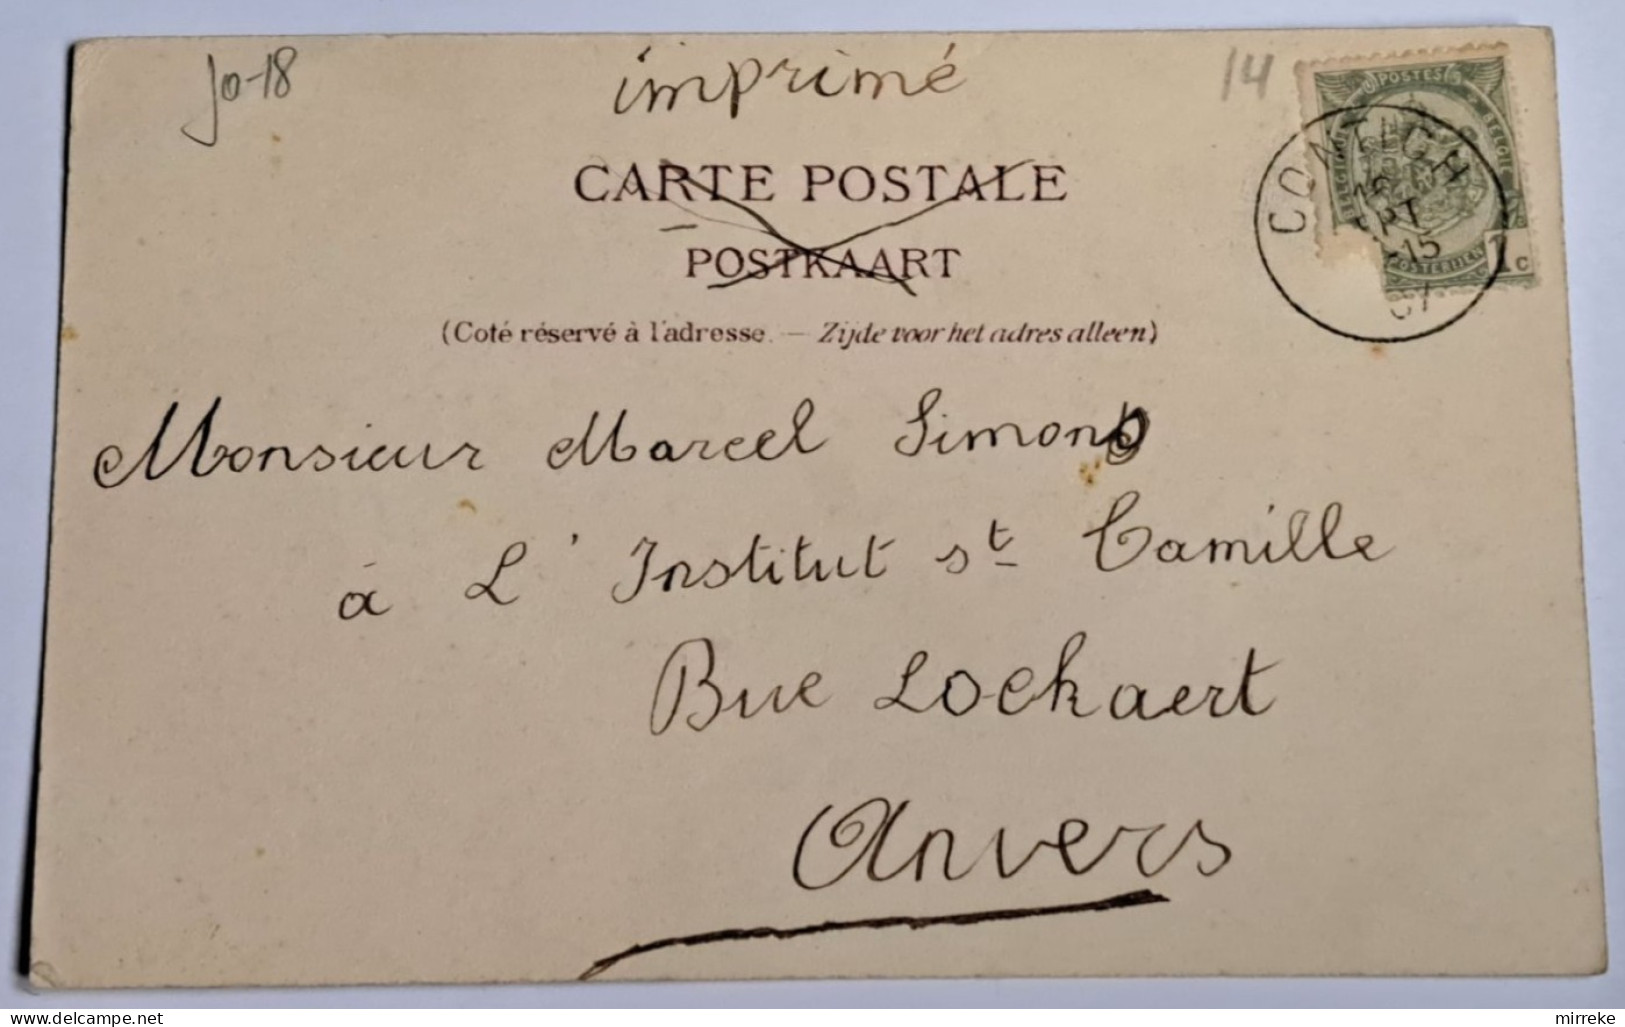 Jo-18
imprimé
14
CARTE POSTALE
POSTKAART
(Coté réservé à l'adresse. — Zijde voor het adres alleen)
POSTES
BELGIQUE
BELGIË
POSTERIJEN
1c
CONTICH
16
15
07
Monsieur Marcel Simons
à L'Institut st Camille
Rue Lockaert
Anvers
mirreke